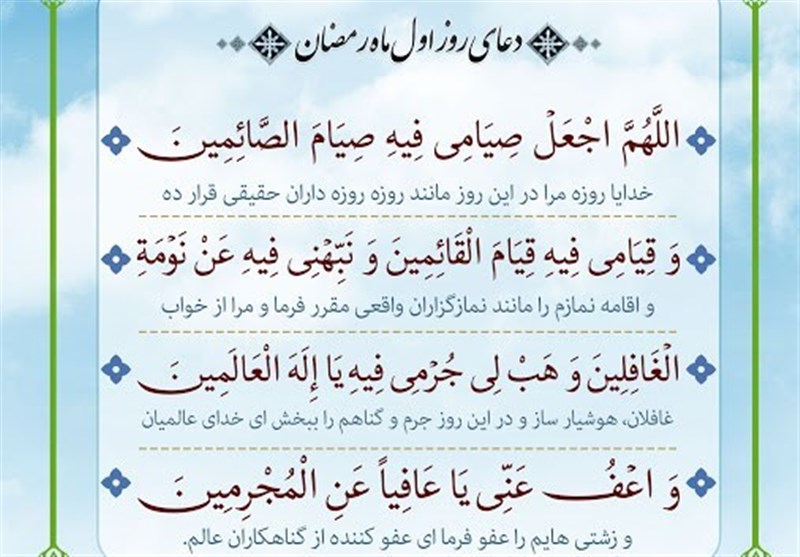 دعای روز اول ماه رمضان
اللَّهُمَّ اجْعَلْ صِیَامِی فِیهِ صِیَامَ الصَّائِمِینَ
خدایا روزه مرا در این روز مانند روزه روزه داران حقیقی قرار ده
وَ قِیَامِی فِیهِ قِیَامَ الْقَائِمِینَ وَ نَبِّهْنِی فِیهِ عَنْ نَوْمَةِ
و اقامه نمازم را مانند نمازگزاران واقعی مقرر فرما و مرا از خواب
الْغَافِلِینَ وَ هَبْ لِی جُرْمِی فِیهِ یَا إِلَهَ الْعَالَمِینَ
غافلان، هوشیار ساز و در این روز جرم و گناهم را ببخش ای خدای عالمیان
وَ اعْفُ عَنِّی یَا عَافِیاً عَنِ الْمُجْرِمِینَ
و زشتی هایم را عفو فرما ای عفو کننده از گناهکاران عالم.